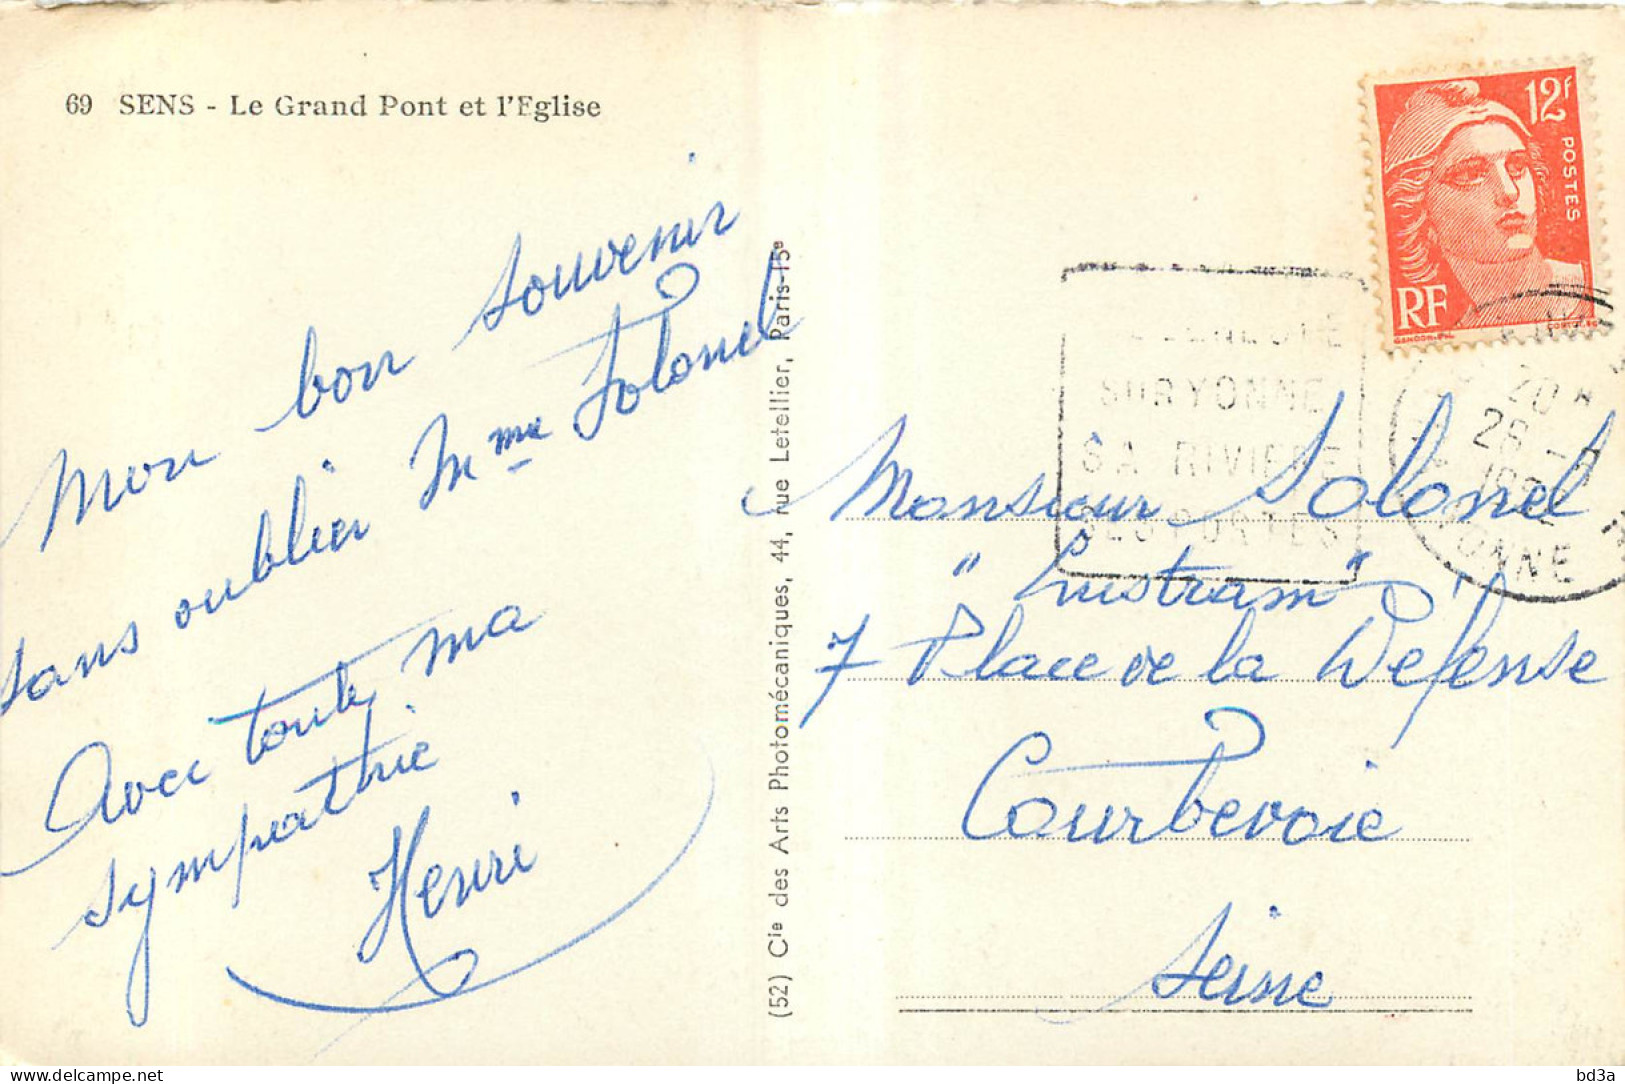 69 SENS - Le Grand Pont et l'Eglise
Mon bon souvenir
sans oublier Mme Solonel
Avec toute ma
sympathie
Henri
(52) Cie des Arts Photomécaniques, 44, rue Letellier, Paris-15e
12F
POSTES
RF
GANDON
SUR YONNE
SA RIVIERE
SES PORTES
20H
28
YONNE
Monsieur Solonel
"Lustram"
7 Place de la Defense
Courbevoie
Seine
delcampe.net
bd3a